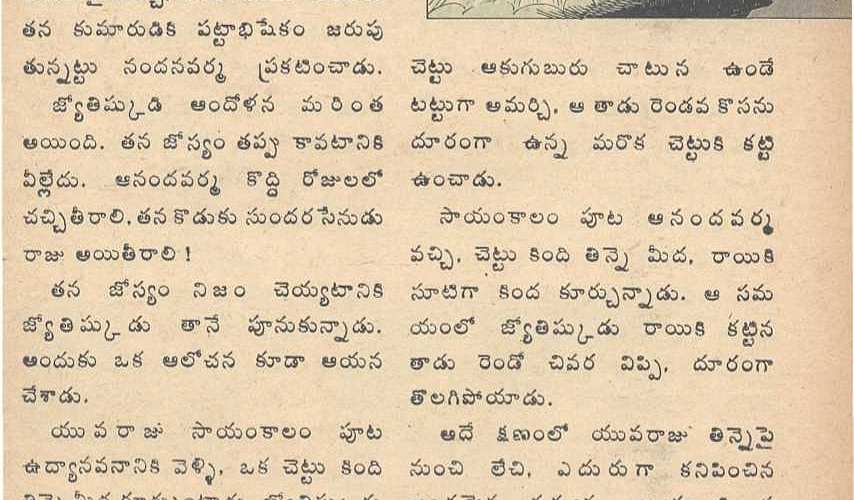 తన కుమారుడికి పట్టాభిషేకం జరుపు
తున్నట్టు నందనవర్మ ప్రకటించాడు.
జ్యోతిష్కుడి ఆందోళన మరింత
అయింది. తన జోస్యం తప్పు కావటానికి
వీల్లేదు. ఆనందవర్మ కొద్ది రోజులలో
చచ్చితీరాలి, తన కొడుకు సుందరసేనుడు
రాజు అయితీరాలి!
తన జోస్యం నిజం చెయ్యటానికి
జ్యోతిష్కుడు తానే పూనుకున్నాడు.
అందుకు ఒక ఆలోచన కూడా ఆయన
చేశాడు.
యువరాజు సాయంకాలం పూట
ఉద్యానవనానికి వెళ్ళి, ఒక చెట్టు కింది
చెట్టు ఆకుగుబురు చాటున ఉండే
టట్టుగా అమర్చి, ఆ తాడు రెండవ కొసను
దూరంగా ఉన్న మరొక చెట్టుకి కట్టి
ఉంచాడు.
సాయంకాలం పూట ఆనందవర్మ
వచ్చి, చెట్టు కింది తిన్నె మీద, రాయికి
సూటిగా కింద కూర్చున్నాడు. ఆ సమ
యంలో జ్యోతిష్కుడు రాయికి కట్టిన
తాడు రెండో చివర విప్పి, దూరంగా
తొలగిపోయాడు.
అదే క్షణంలో యువరాజు తిన్నెపై
నుంచి లేచి, ఎదురుగా కనిపించిన